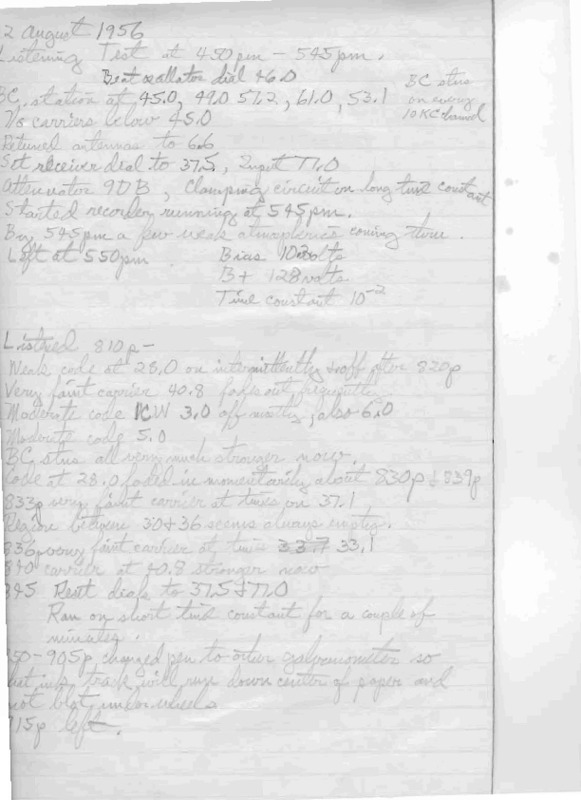 2 August 1956
Listening Test at 450pm - 545pm.
Beat oscillator dial 46.0
BC station at 45.0, 49.0 51.2, 61.0, 53.1
BC stns
on every
10 KC channel
No carriers below 45.0
Retuned antennas to 6.6
Set receiver dial to 37.5, Input 77.0
Attenuator 9DB, Clamping circuit on long time constant
Started recorder running at 545pm.
By 545pm a few weak atmospherics coming thru.
Left at 550pm
Bias volts
B+ 128 volts
Time constant 10⁻²
Listened 810p-
Weak code at 28.0 on intermittently & off after 820p
Very faint carrier 40.8 fades out frequently
Moderate code ICW 3.0 off mostly, also 6.0
Moderate code 5.0
BC stns all very much stronger now.
Code at 28.0 faded in momentarily about 830p & 839p
833p very faint carrier at times on 37.1
Region between 30 & 36 seems always empty.
836p very faint carrier at times 33.7 33.1
840 carrier at 40.8 stronger now
845 Reset dials to 37.5 & 77.0
Ran on short time constant for a couple of
minutes.
50-905p changed pen to other galvanometer so
that ink track will run down center of paper and
not blot under wheels
915p left.